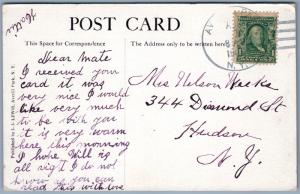 POST CARD
This Space for Correspondence
The Address only to be written here
Dear Mate
I received your
card it was
very nice I would
like very much
to be but
it is very warm
here this morning
I hope Will is
all right I do not
know as you can
read this with love
Mrs Nelson Weeks
344 Diamond St
Hudson
N. Y.